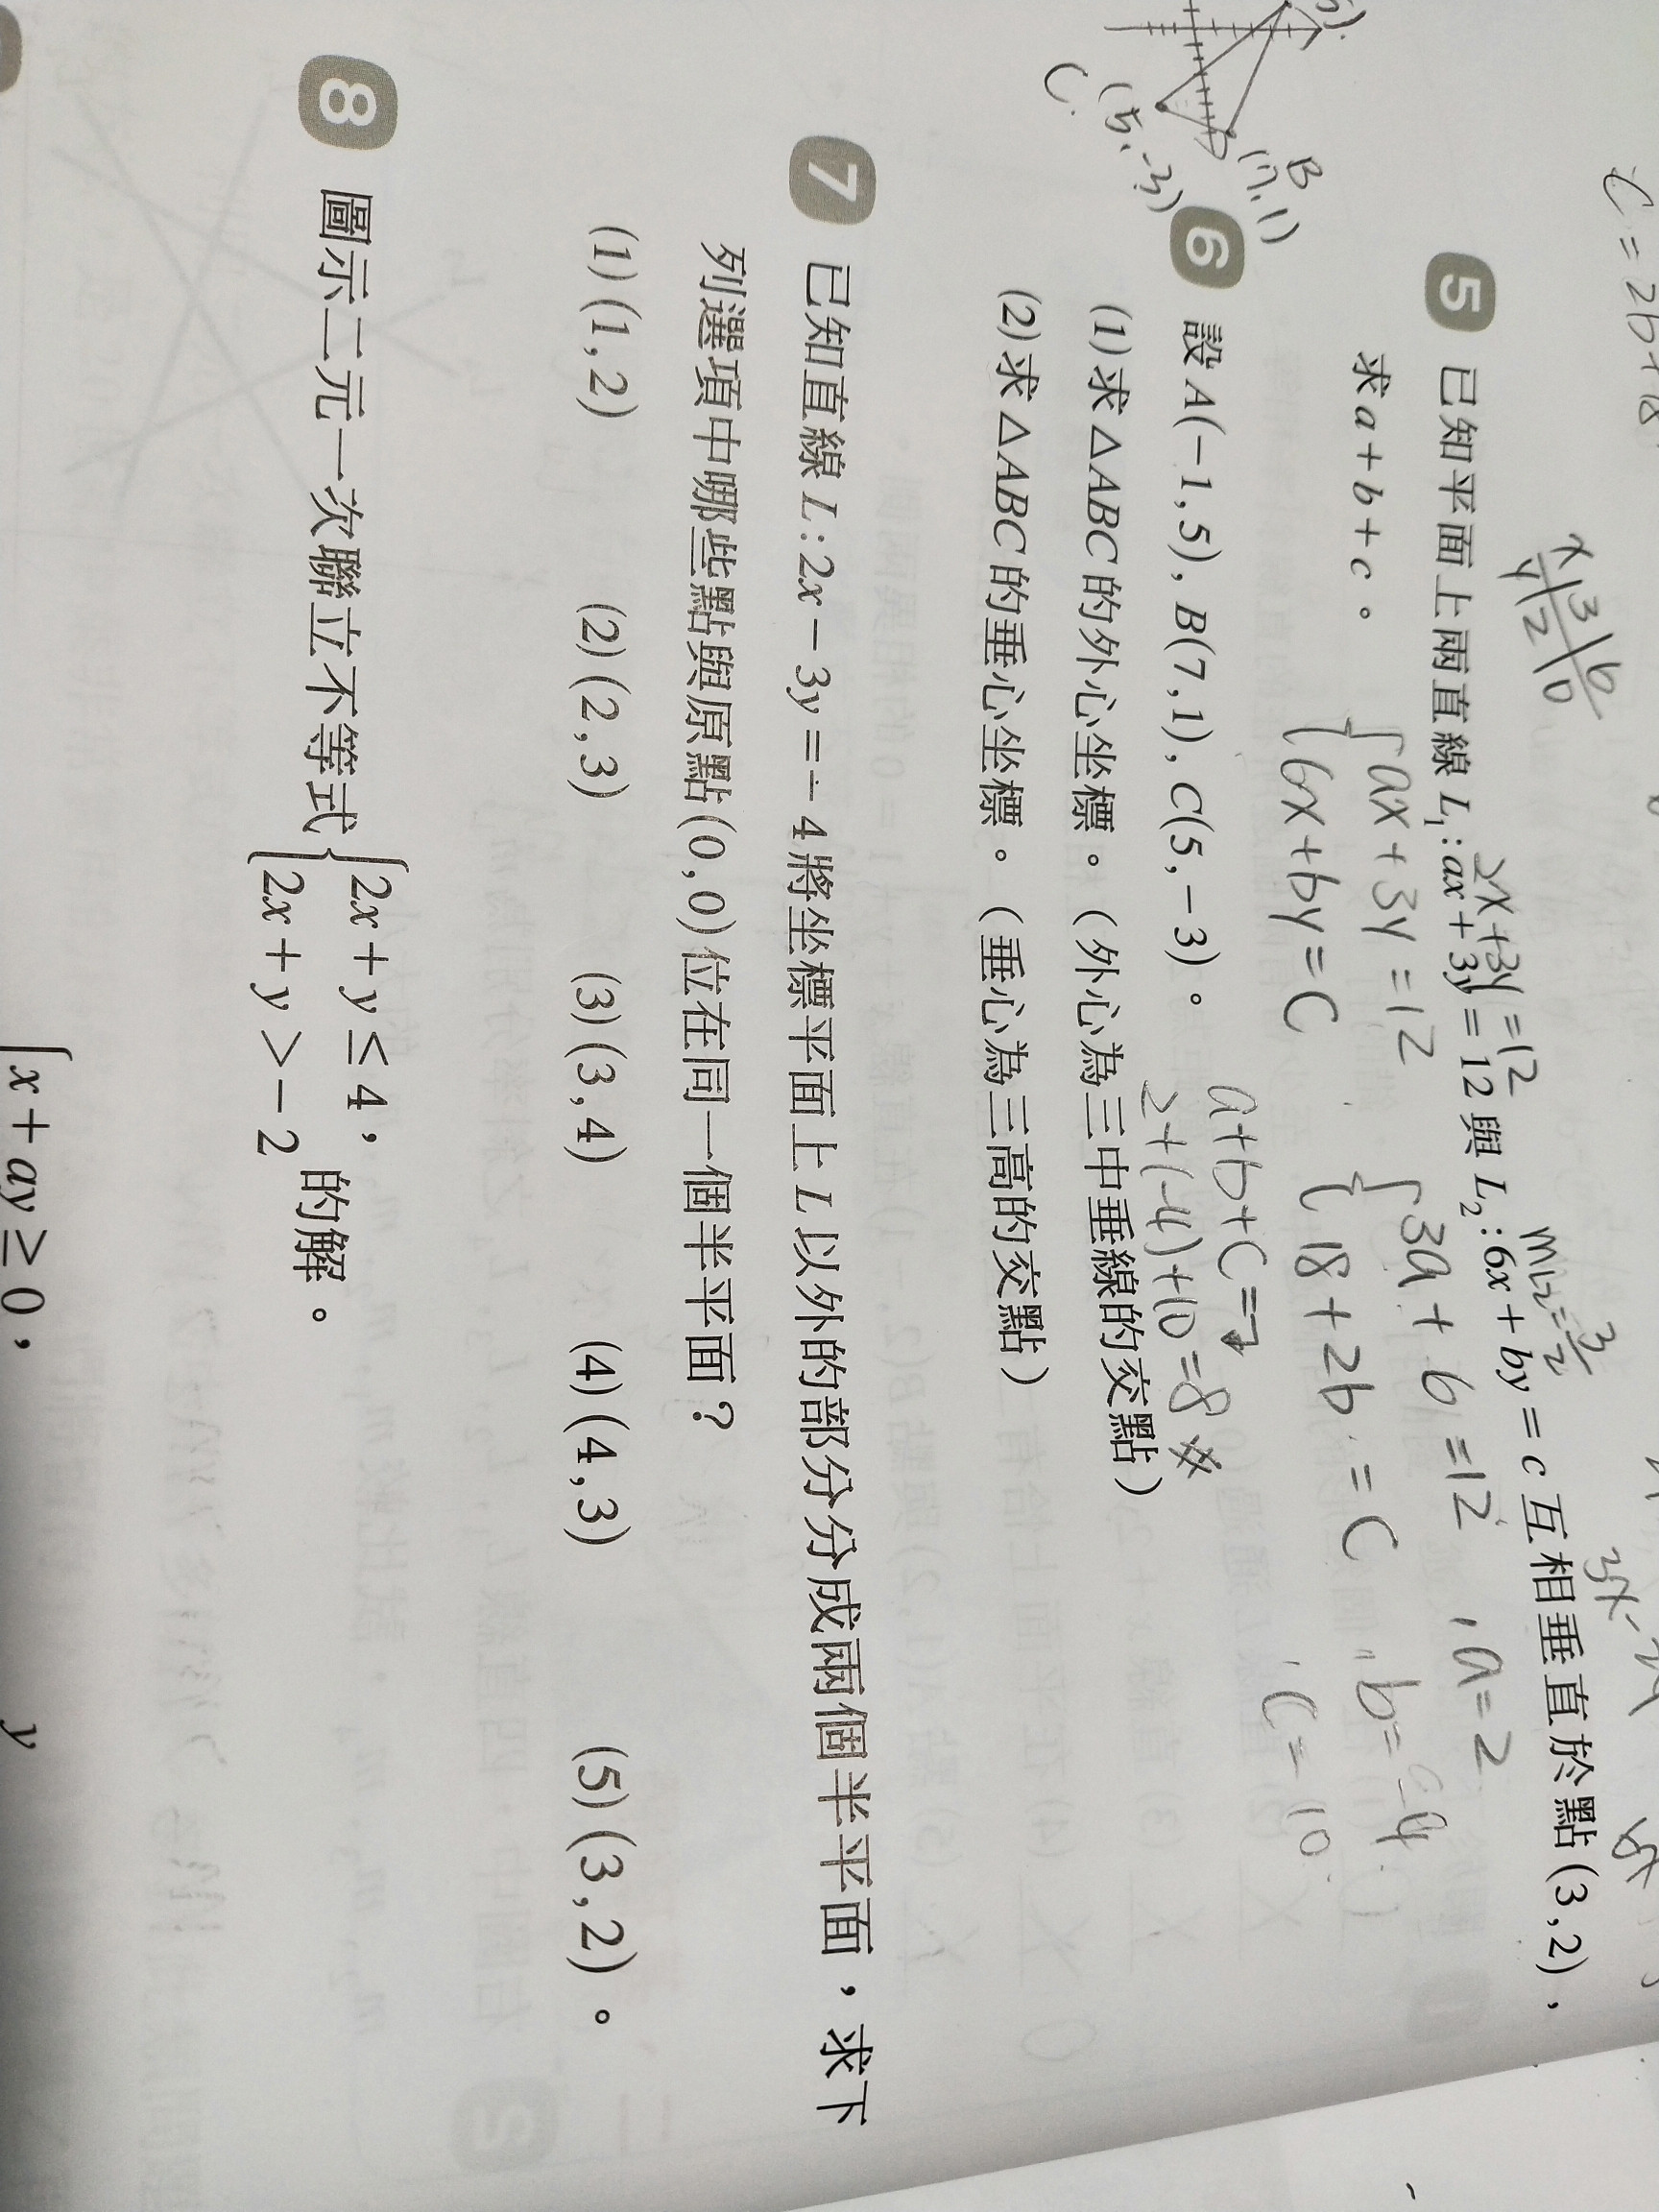 C = 2b+18
x | 3 | 6
y | 2 | 0
2x+3y=12
5 已知平面上兩直線 L₁:ax+3y=12與 L₂:6x+by=c 互相垂直於點(3,2),
求a+b+c。
{ax+3y=12
{6x+by=C
{3a+6=12
{18+2b=C
a=2
b=-4
C=10
a+b+C=7
2+(-4)+10=8
6 設A(-1,5), B(7,1), C(5,-3)。
(1)求△ABC的外心坐標。(外心為三中垂線的交點)
(2)求△ABC的垂心坐標。(垂心為三高的交點)
B
(7,1)
C
(5,-3)
7 已知直線 L:2x-3y=-4將坐標平面上L以外的部分分成兩個半平面,求下
列選項中哪些點與原點(0,0)位在同一個半平面?
(1)(1,2) (2)(2,3) (3)(3,4) (4)(4,3) (5)(3,2)。
8 圖示二元一次聯立不等式{2x+y≤4,
{2x+y>-2 的解。
{x+ay≥0,
y